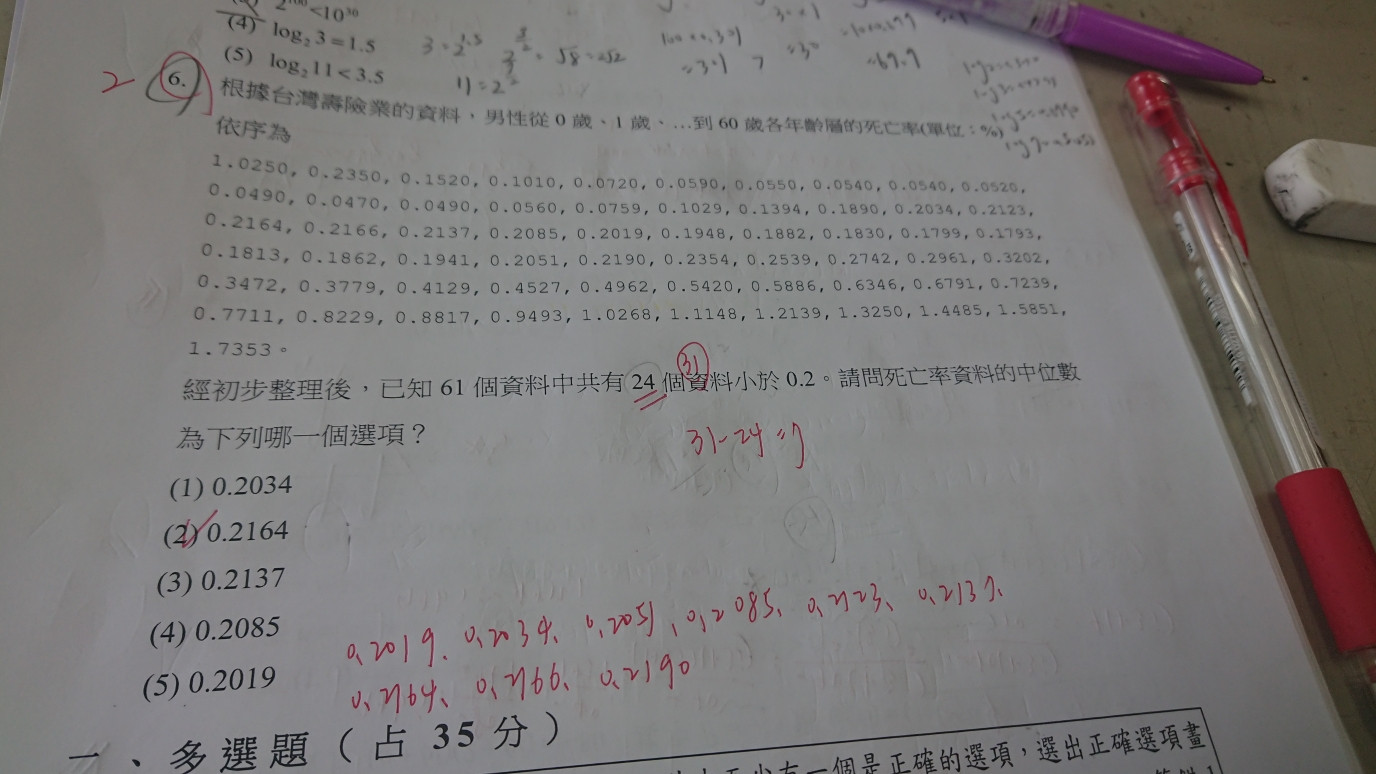 2¹⁰⁰<10³⁰
(4) log₂ 3=1.5
(5) log₂ 11<3.5
2
6. 根據台灣壽險業的資料,男性從 0 歲、1 歲、…到 60 歲各年齡層的死亡率(單位:%)
依序為
1.0250, 0.2350, 0.1520, 0.1010, 0.0720, 0.0590, 0.0550, 0.0540, 0.0540, 0.0520,
0.0490, 0.0470, 0.0490, 0.0560, 0.0759, 0.1029, 0.1394, 0.1890, 0.2034, 0.2123,
0.2164, 0.2166, 0.2137, 0.2085, 0.2019, 0.1948, 0.1882, 0.1830, 0.1799, 0.1793,
0.1813, 0.1862, 0.1941, 0.2051, 0.2190, 0.2354, 0.2539, 0.2742, 0.2961, 0.3202,
0.3472, 0.3779, 0.4129, 0.4527, 0.4962, 0.5420, 0.5886, 0.6346, 0.6791, 0.7239,
0.7711, 0.8229, 0.8817, 0.9493, 1.0268, 1.1148, 1.2139, 1.3250, 1.4485, 1.5851,
1.7353。
31
經初步整理後,已知 61 個資料中共有 24 個資料小於 0.2。請問死亡率資料的中位數
為下列哪一個選項?
31-24=7
(1) 0.2034
(2) 0.2164
(3) 0.2137
(4) 0.2085
(5) 0.2019
0.2019、0.2034、0.2051、0.2085、0.2123、0.2137、
0.2164、0.2166、0.2190
一、多選題(占 35 分)
有一個是正確的選項,選出正確選項畫